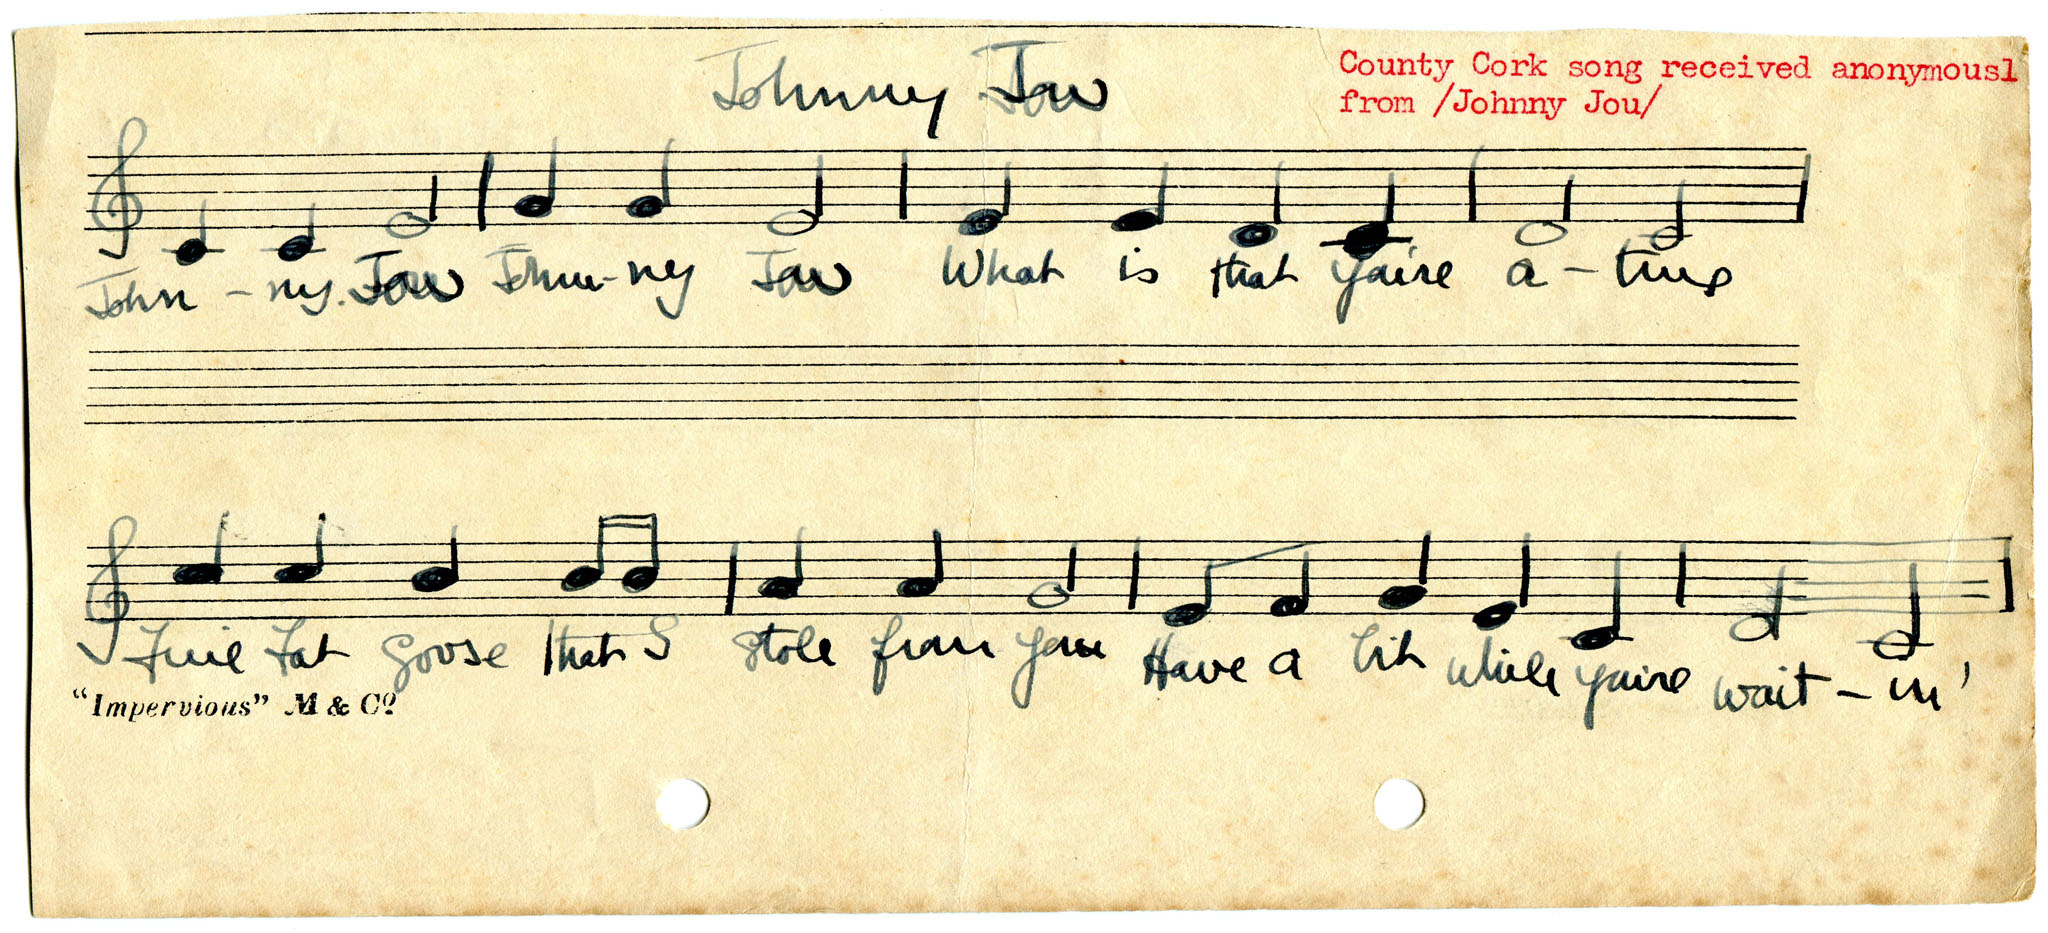 Johnny Jou
County Cork song received anonymousl
from /Johnny Jou/
John - ny Jou Johnn - ny Jou What is that you're a - 
Fine Fat Goose that I Stole from you Have a bit while you're wait - in'
"Impervious" M & Co.